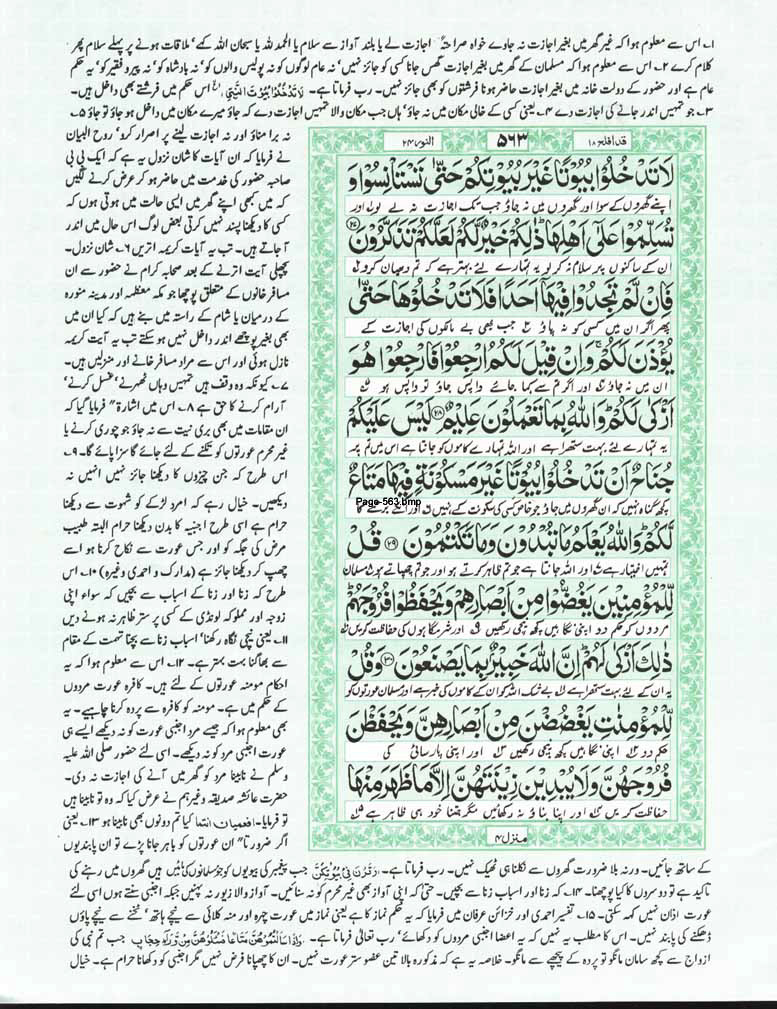 ۱۔ اس سے معلوم ہوا کہ غیر گھر میں بغیر اجازت نہ جاوے خواہ صراحۃً اجازت لے یا بلند آواز سے سلام یا الحمد للہ یا سبحان اللہ کہے، ملاقات ہونے پر پہلے سلام پھر
کلام کرے ۲۔ اس سے معلوم ہوا کہ مسلمان کے گھر میں بغیر اجازت گھس جانا کسی کو جائز نہیں، نہ عام لوگوں کو نہ پولیس والوں کو، نہ بادشاہ کو، نہ پیر و فقیر کو، یہ حکم
عام ہے اور حضور کے دولت خانہ میں بغیر اجازت حاضر ہونا فرشتوں کو بھی جائز نہیں۔ رب فرماتا ہے۔ لَا تَدْخُلُوْا بُیُوْتَ النَّبِیِّ الخ اس حکم میں فرشتے بھی داخل ہیں۔
۳۔ جو تمہیں اندر جانے کی اجازت دے ۴۔ یعنی کسی کے خالی مکان میں نہ جاؤ، ہاں جب مکان والا تمہیں اجازت دے کہ جاؤ میرے مکان میں داخل ہو جاؤ تو جاؤ ۵۔
نہ برا مناؤ اور نہ اجازت لینے پر اصرار کرو، روح البیان
نے فرمایا کہ ان آیات کا شان نزول یہ ہے کہ ایک بی بی
صاحبہ حضور کی خدمت میں حاضر ہو کر عرض کرنے لگیں
کہ میں کبھی اپنے گھر میں ایسی حالت میں ہوتی ہوں کہ
کسی کا دیکھنا پسند نہیں کرتی بعض لوگ اس حال میں اندر
آ جاتے ہیں۔ تب یہ آیات کریمہ اتریں ۶۔ شان نزول۔
پچھلی آیت اترنے کے بعد صحابہ کرام نے حضور سے ان
مسافر خانوں کے متعلق پوچھا جو مکہ معظمہ اور مدینہ منورہ
کے درمیان یا شام کے راستہ میں بنے ہیں کہ کیا ان میں
بھی بغیر پوچھے اندر داخل نہیں ہو سکتے تب یہ آیت کریمہ
نازل ہوئی اور اس سے مراد مسافر خانے اور منزلیں ہیں۔
۷۔ کیونکہ وہ وقف ہیں تمہیں وہاں ٹھہرنے، غسل کرنے،
آرام کرنے کا حق ہے ۸۔ اس میں اشارۃً فرمایا گیا کہ
ان مقامات میں بھی بری نیت سے نہ جاؤ جو چوری کرنے یا
غیر محرم عورتوں کو تکنے کے لئے جائے گا سزا پائے گا۔ ۹۔
اس طرح کہ جن چیزوں کا دیکھنا جائز نہیں انہیں نہ
دیکھیں۔ خیال رہے کہ امرد لڑکے کو شہوت سے دیکھنا
حرام ہے اسی طرح اجنبیہ کا بدن دیکھنا حرام البتہ طبیب
مرض کی جگہ کو اور جس عورت سے نکاح کرنا ہو اسے
چھپ کر دیکھنا جائز ہے (مدارک و احمدی وغیرہ) ۱۰۔ اس
طرح کہ زنا اور زنا کے اسباب سے بچیں کہ سواء اپنی
زوجہ اور مملوکہ لونڈی کے کسی پر ستر ظاہر نہ ہونے دیں
۱۱۔ یعنی نیچی نگاہ رکھنا، اسباب زنا سے بچنا تہمت کے مقام
سے بھاگنا بہت بہتر ہے۔ ۱۲۔ اس سے معلوم ہوا کہ یہ
احکام مومنہ عورتوں کے لئے ہیں۔ کافرہ عورت مردوں
کے حکم میں ہے۔ مومنہ کو کافرہ سے پردہ کرنا چاہیے۔ یہ
بھی معلوم ہوا کہ جیسے مرد اجنبی عورت کو نہ دیکھے ایسے ہی
عورت اجنبی مرد کو نہ دیکھے۔ اسی لئے حضور صلی اللہ علیہ
وسلم نے نابینا مرد کو گھر میں آنے کی اجازت نہ دی۔
حضرت عائشہ صدیقہ وغیرہم نے عرض کیا کہ وہ تو نابینا ہیں
تو فرمایا۔ افعمیان انتما کیا تم دونوں بھی نابینا ہو ۱۳۔ یعنی
اگر ضرورتاً ان عورتوں کو باہر جانا پڑے تو ان پابندیوں
قد افلح ۱۸ ۵۶۳ النور ۲۴
لَا تَدْخُلُوْا بُیُوْتًا غَیْرَ بُیُوْتِكُمْ حَتّٰى تَسْتَاْنِسُوْا وَ
اپنے گھروں کے سوا اور گھروں میں نہ جاؤ جب تک اجازت نہ لے لو اور
تُسَلِّمُوْا عَلٰۤى اَهْلِهَاؕ ذٰلِكُمْ خَیْرٌ لَّكُمْ لَعَلَّكُمْ تَذَكَّرُوْنَ ۲۷
ان کے ساکنوں پر سلام نہ کر لو یہ تمہارے لئے بہتر ہے کہ تم دھیان کرو
فَاِنْ لَّمْ تَجِدُوْا فِیْهَاۤ اَحَدًا فَلَا تَدْخُلُوْهَا حَتّٰى
پھر اگر ان میں کسی کو نہ پاؤ جب بھی بے مالکوں کی اجازت کے
یُؤْذَنَ لَكُمْۚ وَ اِنْ قِیْلَ لَكُمُ ارْجِعُوْا فَارْجِعُوْا هُوَ
ان میں نہ جاؤ اور اگر تم سے کہا جائے واپس جاؤ تو واپس ہو
اَزْكٰى لَكُمْؕ وَ اللّٰهُ بِمَا تَعْمَلُوْنَ عَلِیْمٌ ۲۸ لَیْسَ عَلَیْكُمْ
یہ تمہارے لئے بہت ستھرا ہے اور اللہ تمہارے کاموں کو جانتا ہے اس میں تم پر
جُنَاحٌ اَنْ تَدْخُلُوْا بُیُوْتًا غَیْرَ مَسْكُوْنَةٍ فِیْهَا مَتَاعٌ
کچھ گناہ نہیں کہ ان گھروں میں جاؤ جو خاص کسی کی سکونت کے نہیں اور ان کے برتنے کا
Page-563.bmp
لَّكُمْؕ وَ اللّٰهُ یَعْلَمُ مَا تُبْدُوْنَ وَ مَا تَكْتُمُوْنَ ۲۹ قُلْ
تمہیں اختیار ہے اور اللہ جانتا ہے جو تم ظاہر کرتے ہو اور جو تم چھپاتے ہو مسلمان
لِّلْمُؤْمِنِیْنَ یَغُضُّوْا مِنْ اَبْصَارِهِمْ وَ یَحْفَظُوْا فُرُوْجَهُمْؕ
مردوں کو حکم دو اپنی نگاہیں کچھ نیچی رکھیں اور اپنی شرمگاہوں کی حفاظت کریں
ذٰلِكَ اَزْكٰى لَهُمْؕ اِنَّ اللّٰهَ خَبِیْرٌۢ بِمَا یَصْنَعُوْنَ ۳۰ وَ قُلْ
یہ ان کے لئے بہت ستھرا ہے بے شک اللہ کو ان کے کاموں کی خبر ہے اور مسلمان عورتوں کو
لِّلْمُؤْمِنٰتِ یَغْضُضْنَ مِنْ اَبْصَارِهِنَّ وَ یَحْفَظْنَ
حکم دو اپنی نگاہیں کچھ نیچی رکھیں اور اپنی پارسائی کی
فُرُوْجَهُنَّ وَ لَا یُبْدِیْنَ زِیْنَتَهُنَّ اِلَّا مَا ظَهَرَ مِنْهَا
حفاظت کریں اور اپنا بناؤ نہ دکھائیں مگر جتنا خود ہی ظاہر ہے
منزل ۴
کے ساتھ جائیں۔ ورنہ بلا ضرورت گھروں سے نکلنا ہی ٹھیک نہیں۔ رب فرماتا ہے۔ وَ قَرْنَ فِیْ بُیُوْتِكُنَّ جب پیغمبر کی بیویوں کو جو مسلمانوں کی مائیں ہیں گھروں میں رہنے کی
تاکید ہے تو دوسروں کا کیا پوچھنا۔ ۱۴۔ کہ زنا اور اسباب زنا سے بچیں۔ حتیٰ کہ اپنی آواز بھی غیر محرم کو نہ سنائیں۔ آواز والا زیور نہ پہنیں جبکہ اجنبی سنتے ہوں اسی لئے
عورت اذان نہیں کہہ سکتی۔ ۱۵۔ تفسیر احمدی اور خزائن عرفان میں فرمایا کہ یہ حکم نماز کا ہے یعنی نماز میں عورت چہرہ اور منہ کلائی سے نیچے ہاتھ، ٹخنے سے نیچے پاؤں
ڈھکنے کی پابند نہیں۔ اس کا مطلب یہ نہیں کہ یہ اعضا اجنبی مردوں کو دکھائے، رب تعالیٰ فرماتا ہے۔ وَ اِذَا سَاَلْتُمُوْهُنَّ مَتَاعًا فَسْـَٔلُوْهُنَّ مِنْ وَّرَآءِ حِجَابٍ جب تم نبی کی
ازواج سے کچھ سامان مانگو تو پردہ کے پیچھے سے مانگو۔ خلاصہ یہ ہے کہ مذکورہ بالا تین عضو ستر عورت نہیں۔ ان کا چھپانا فرض نہیں مگر اجنبی کو دکھانا حرام ہے۔ خیال